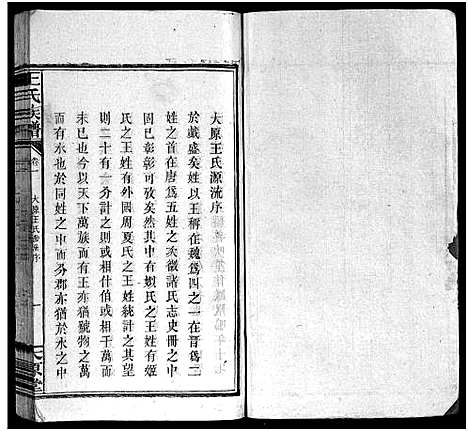 大原王氏源流序
於戲盛矣姓以王稱在魏爲四之一在晉爲二
姓之首在唐爲五姓之次徵諸氏志史冊之間
固已彰彰可攷矣然其中有媯氏之王姓有姬
氏之王姓有外國周夏氏之王姓統計之其望
則二十有一分計之則什伯或相千萬而
未已也今以天下萬族而有王亦猶號物之萬
而有水也於同姓之中而分郡亦猶於水之中
王氏族譜
卷一
大原王氏源流序
一